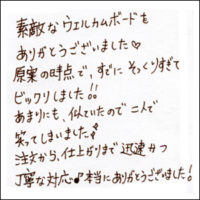 素敵なウェルカムボードを
ありがとうございました♡
原案の時点で、すでにそっくりすぎて
ビックリしました!!
あまりにも、似ていたので二人で
笑ってしまいました♪
注文から、仕上がりまで迅速かつ
丁寧な対応♪本当にありがとうございました!